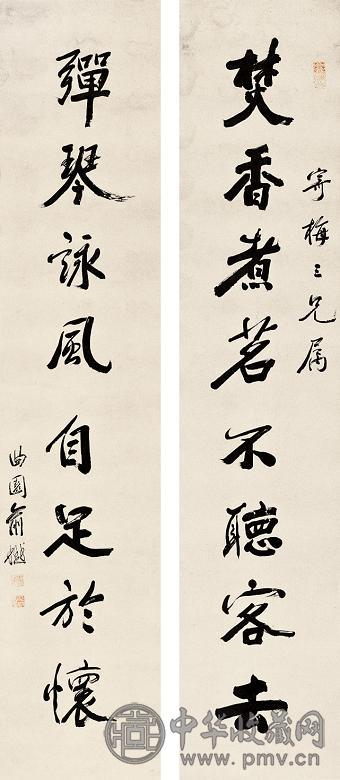 寄梅三兄属
焚香煮茗不聽客去
彈琴詠風自足於懷
曲園俞樾
中华收藏网
www.pmv.cn